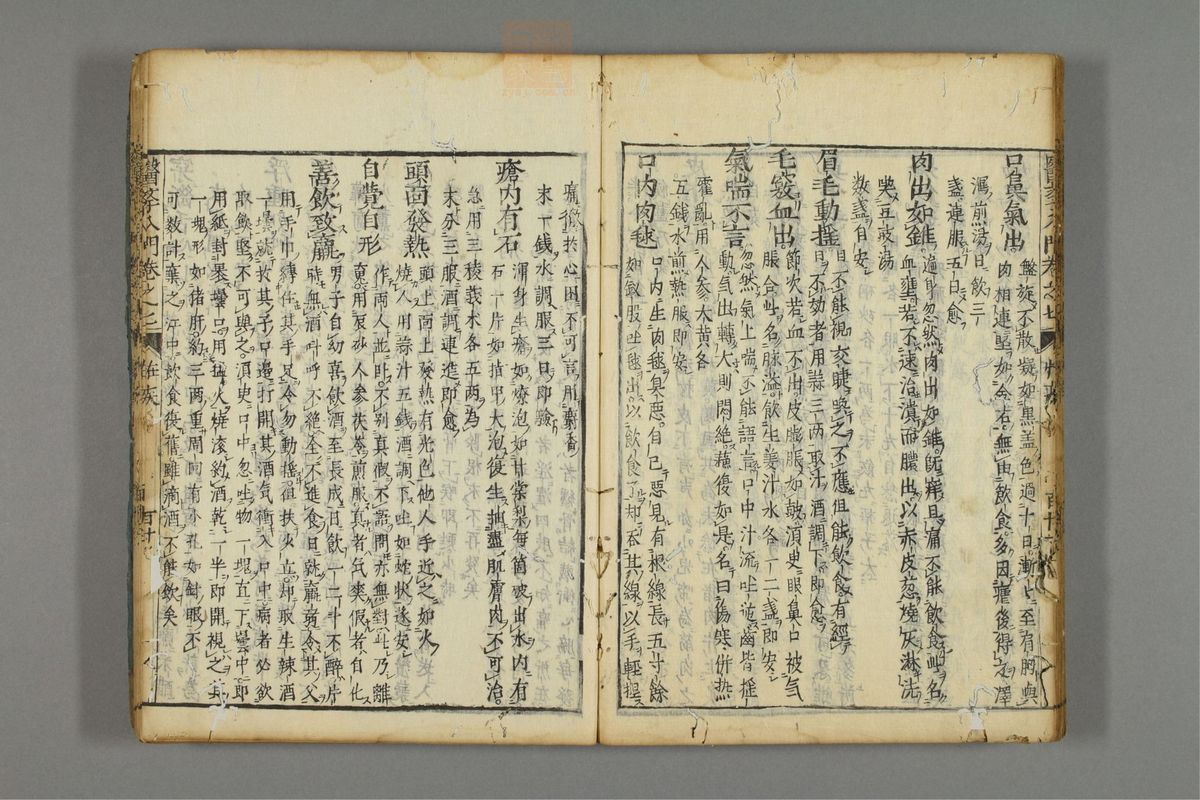 口鼻氣出 盤旋不散凝如黑蓋色過十日漸漸至肩胸與
肉相連堅如金石無由飲食多因瘧後得之澤
瀉煎湯日飲三
盞連服五日愈
肉出如錐 遍身忽然肉出如錐既痒且痛不能飲食此名
血壅若不速治潰而膿出以赤皮葱燒灰淋洗
喫豆豉湯
數盞自安
眉毛動搖 目不能視交睫喚之不應但能飲食有經
日不効者用蒜三兩取汁酒調下即愈
毛竅血出 節次若血不出皮膨脹如皷須臾眼鼻口被氣
脹合此名脉溢飲生姜汁水各一二盞即安
氣喘不言 忽然氣上喘不能語言口中汁流吐逆齒皆搖
動氣出轉大則悶絕蘓復如是名曰傷寒併热
霍亂用人参大黃各
五錢水煎熱服即安
口內肉毬 口內生肉毬臭惡自己惡見有根線長五寸餘
如釵股吐毬出以飲食了却吞其線以手輕捏
痛徹於心困不可言用麝香
末一錢水調服三日即驗
瘡內有石 渾身生瘡如燎泡如甘棠梨每箇破出水內有
石一片如指甲大泡復生抽盡肌膚肉不可治
急用三稜莪术各五兩為
末分三服酒調連進即愈
頭面發熱 頭上面上發熱有光色他人手近之如火
燒人用蒜汁五錢酒調下吐如蛇狀遂安
自覺自形 作兩人並卧不別真假不語問亦無對此乃離
魂用辰砂人参茯苓煎服真者氣爽假者自化
善飲致羸 男子自幼喜飲酒至長成日飲一二斗不醉片
時無酒叫呼不絕全不進食日就羸弱令其父
用手巾縛住其手足令勿動搖但扶少立却取生辣酒
一壜就於其子口邊打開其酒氣衝入口中病者必欲
取飲堅不可與之須臾口中忽吐物一塊直下壜中即
用紙封裹壜口用猛火燒滾約酒乾一半即開視之其
一塊形如猪肝約三兩重周回有小孔如針眼不
可數計棄之江中飲食復舊雖滴酒不能飲矣